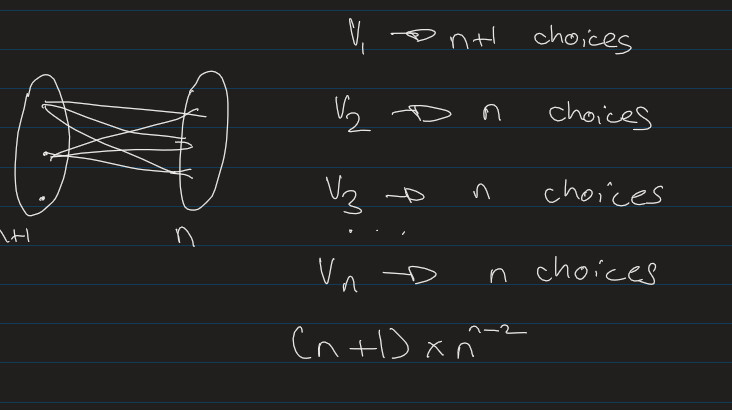 V₁ → n+1 choices
V₂ → n choices
V₃ → n choices
. . .
Vₙ → n choices
n+1 n
(n+1) × nⁿ⁻²